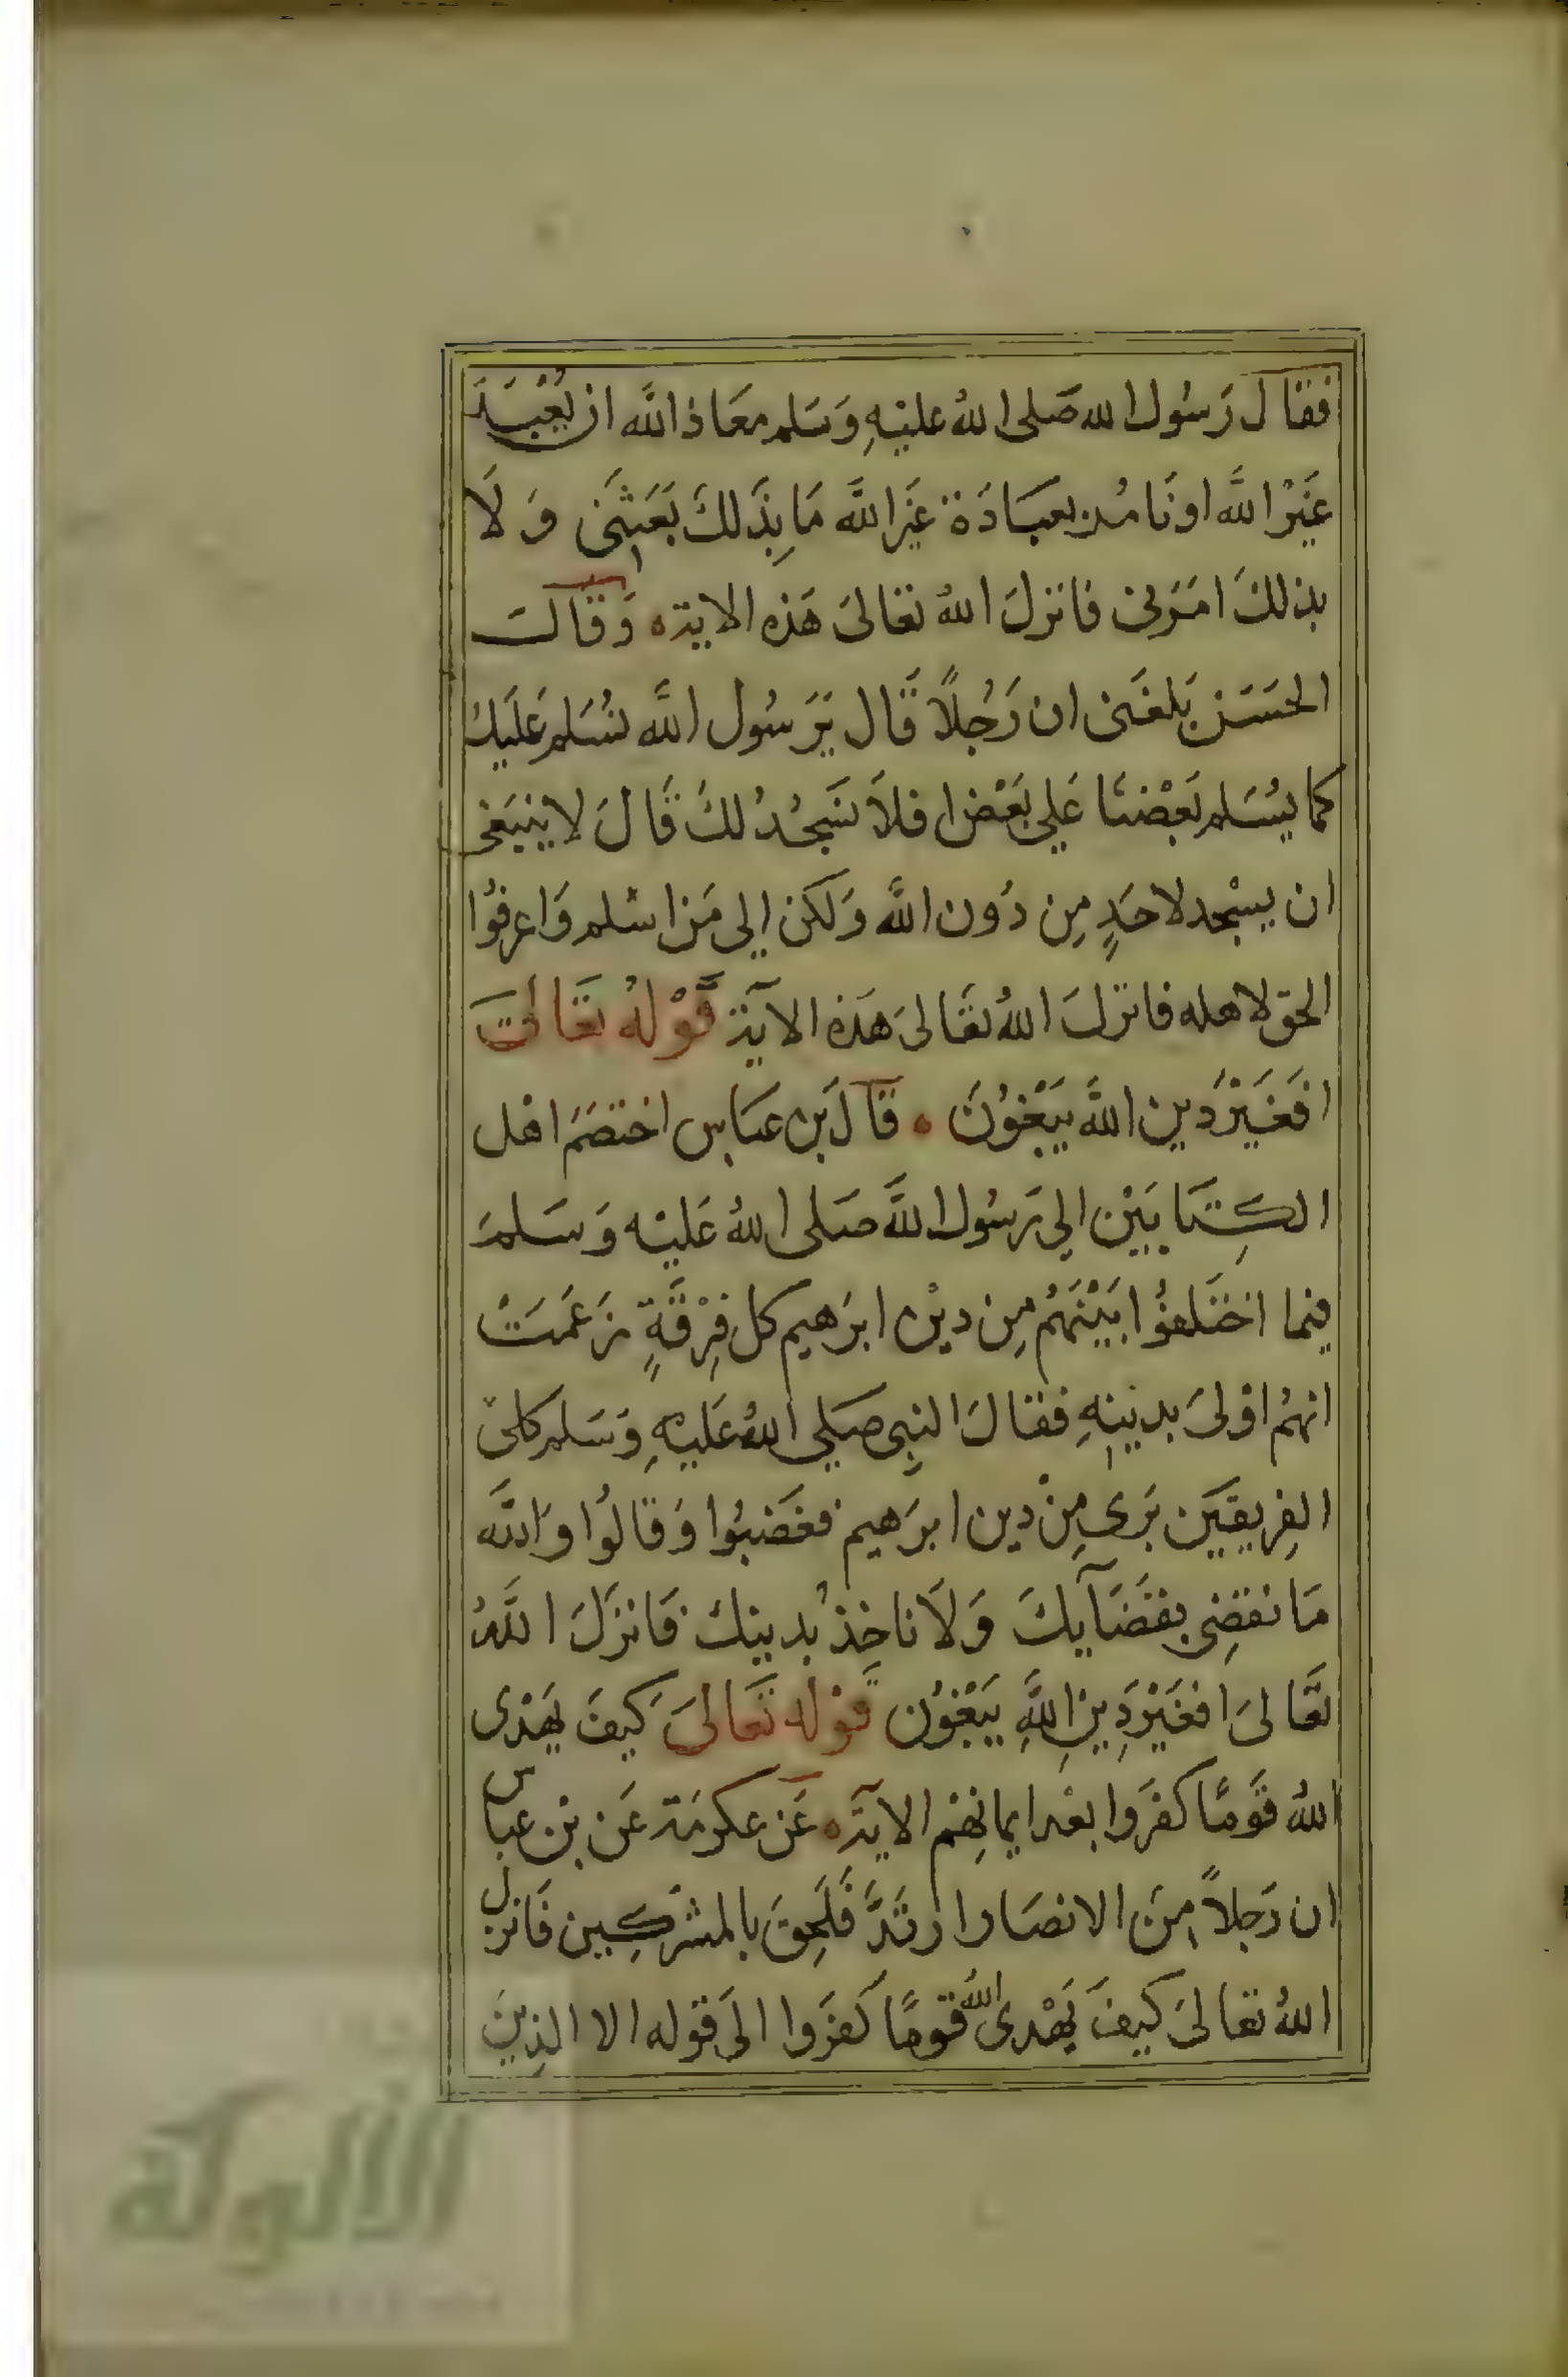 فقال رَسُول الله صَلى اللهُ عليْهِ وَسَلم معَاذ اللَّه ان يُعْبَدَ
غَيْرُ اللَّه او نَامُر بعبَادَة غَيْرِ اللَّه مَا بِذَلكَ بَعَثِنَى وَ لَا
بذلكَ امَرَنى فانزلَ اللهُ تعالىَ هَذِه الايَة ه وَقَالَ
الحسَن بَلغَنى ان رَجُلًا قَال يَرَسُول اللَّه نسُلم عَليْكَ
كما يسُلم بَعْضنَا عَلي بَعْض افلاَ نسَجُدُ لكَ قَالَ لا ينبَغى
ان يسْجد لاحَدٍ مِن دُون اللَّه وَلكن إلى مَن اسْلم وَاعرفوُا
الحق لاهله فانزلَ اللهُ تعَالىَ هَذه الآيَة قَوْلهُ تعَالىَ
افَغَيْرَ دَين اللَّه يَبْغوُنَ ه قَالَ بن عبَاس اختصَمَ اهل
الكِتَابَيْن الي رَسُول اللَّه صَلى اللهُ عَليْه وَسَلمَ
فيما اختَلفوُا بَيْنهَمُ مِن ديْن ابرَهيم كل فِرْقَةٍ زَعَمَتْ
انهمُ اوْلىَ بدينِهِ فقالَ النبِي صَلي اللهُ عَليْهِ وَسَلم كلىَ
الفِريقَيَن بَرَى مِنْ دين ابرَهيم فغَضبُوا وَقالوُا وَاللَّه
مَا نقضِى بقضَآيكَ وَلاَ ناخِذُ بدينك فَانزَلَ اللَّهُ
تعَالىَ افغَيْرَ دِينِ اللَّهِ يَبْغوُن قَوْله تَعَالىَ كيفَ يَهْدى
اللهُ قَومًا كفرَوا بعْد ايمانِهْم الايَة ه عَن عكرمَة عَن بْن عباس
ان رَجلاً مِنَ الانصَار ارتَدَّ فَلَحِقَ بالمشرَكِين فَانزل
اللهُ تعالىَ كيفَ يَهْدى اللَّه قومًا كفرَوا الىَ قوله الا الذِينَ
الألوكة